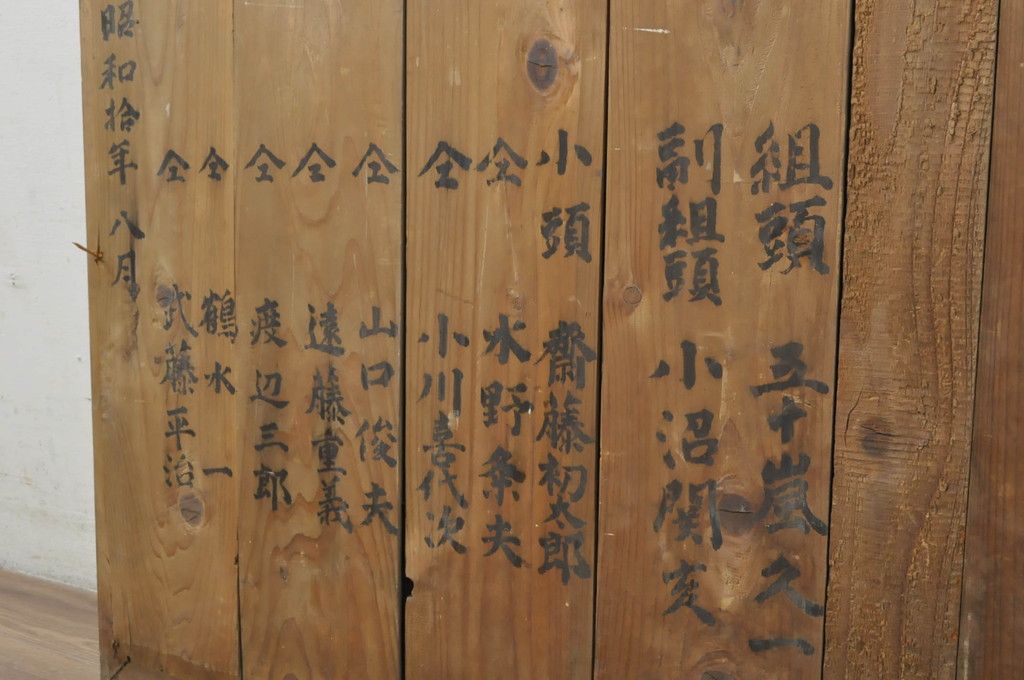 組頭 五十嵐久一
副組頭 小沼関亥
小頭 齋藤初太郎
仝 水野条夫
仝 小川喜代次
仝 山口俊夫
仝 遠藤重義
仝 渡辺三郎
仝 鶴水一
仝 武藤平治
昭和拾年八月